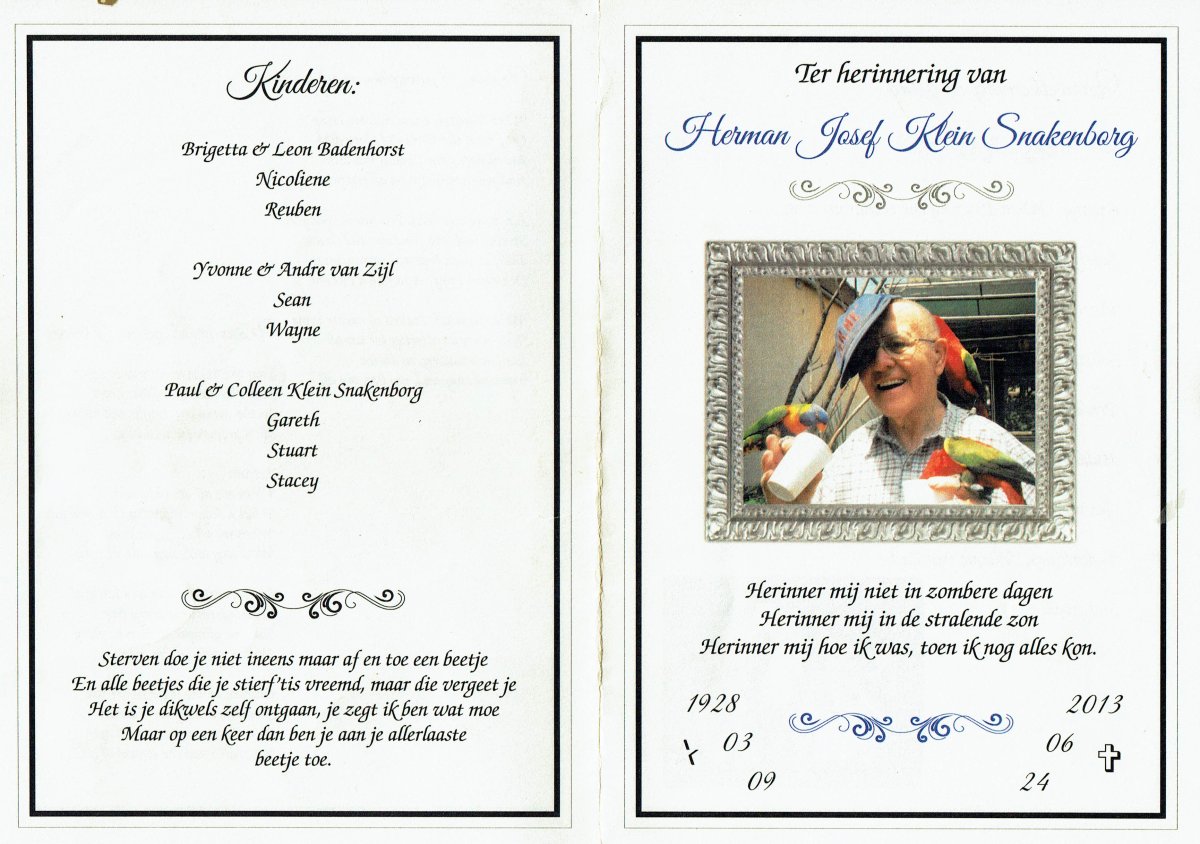 Kinderen:
Brigetta & Leon Badenhorst
Nicoliene
Reuben
Yvonne & Andre van Zijl
Sean
Wayne
Paul & Colleen Klein Snakenborg
Gareth
Stuart
Stacey
Sterven doe je niet ineens maar af en toe een beetje
En alle beetjes die je stierf 'tis vreemd, maar die vergeet je
Het is je dikwels zelf ontgaan, je zegt ik ben wat moe
Maar op een keer dan ben je aan je allerlaaste
beetje toe.
Ter herinnering van
Herman Josef Klein Snakenborg
Herinner mij niet in zombere dagen
Herinner mij in de stralende zon
Herinner mij hoe ik was, toen ik nog alles kon.
1928 2013
03 06
09 24